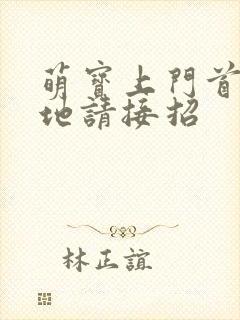 萌寶上門首
地請接招
林正誼